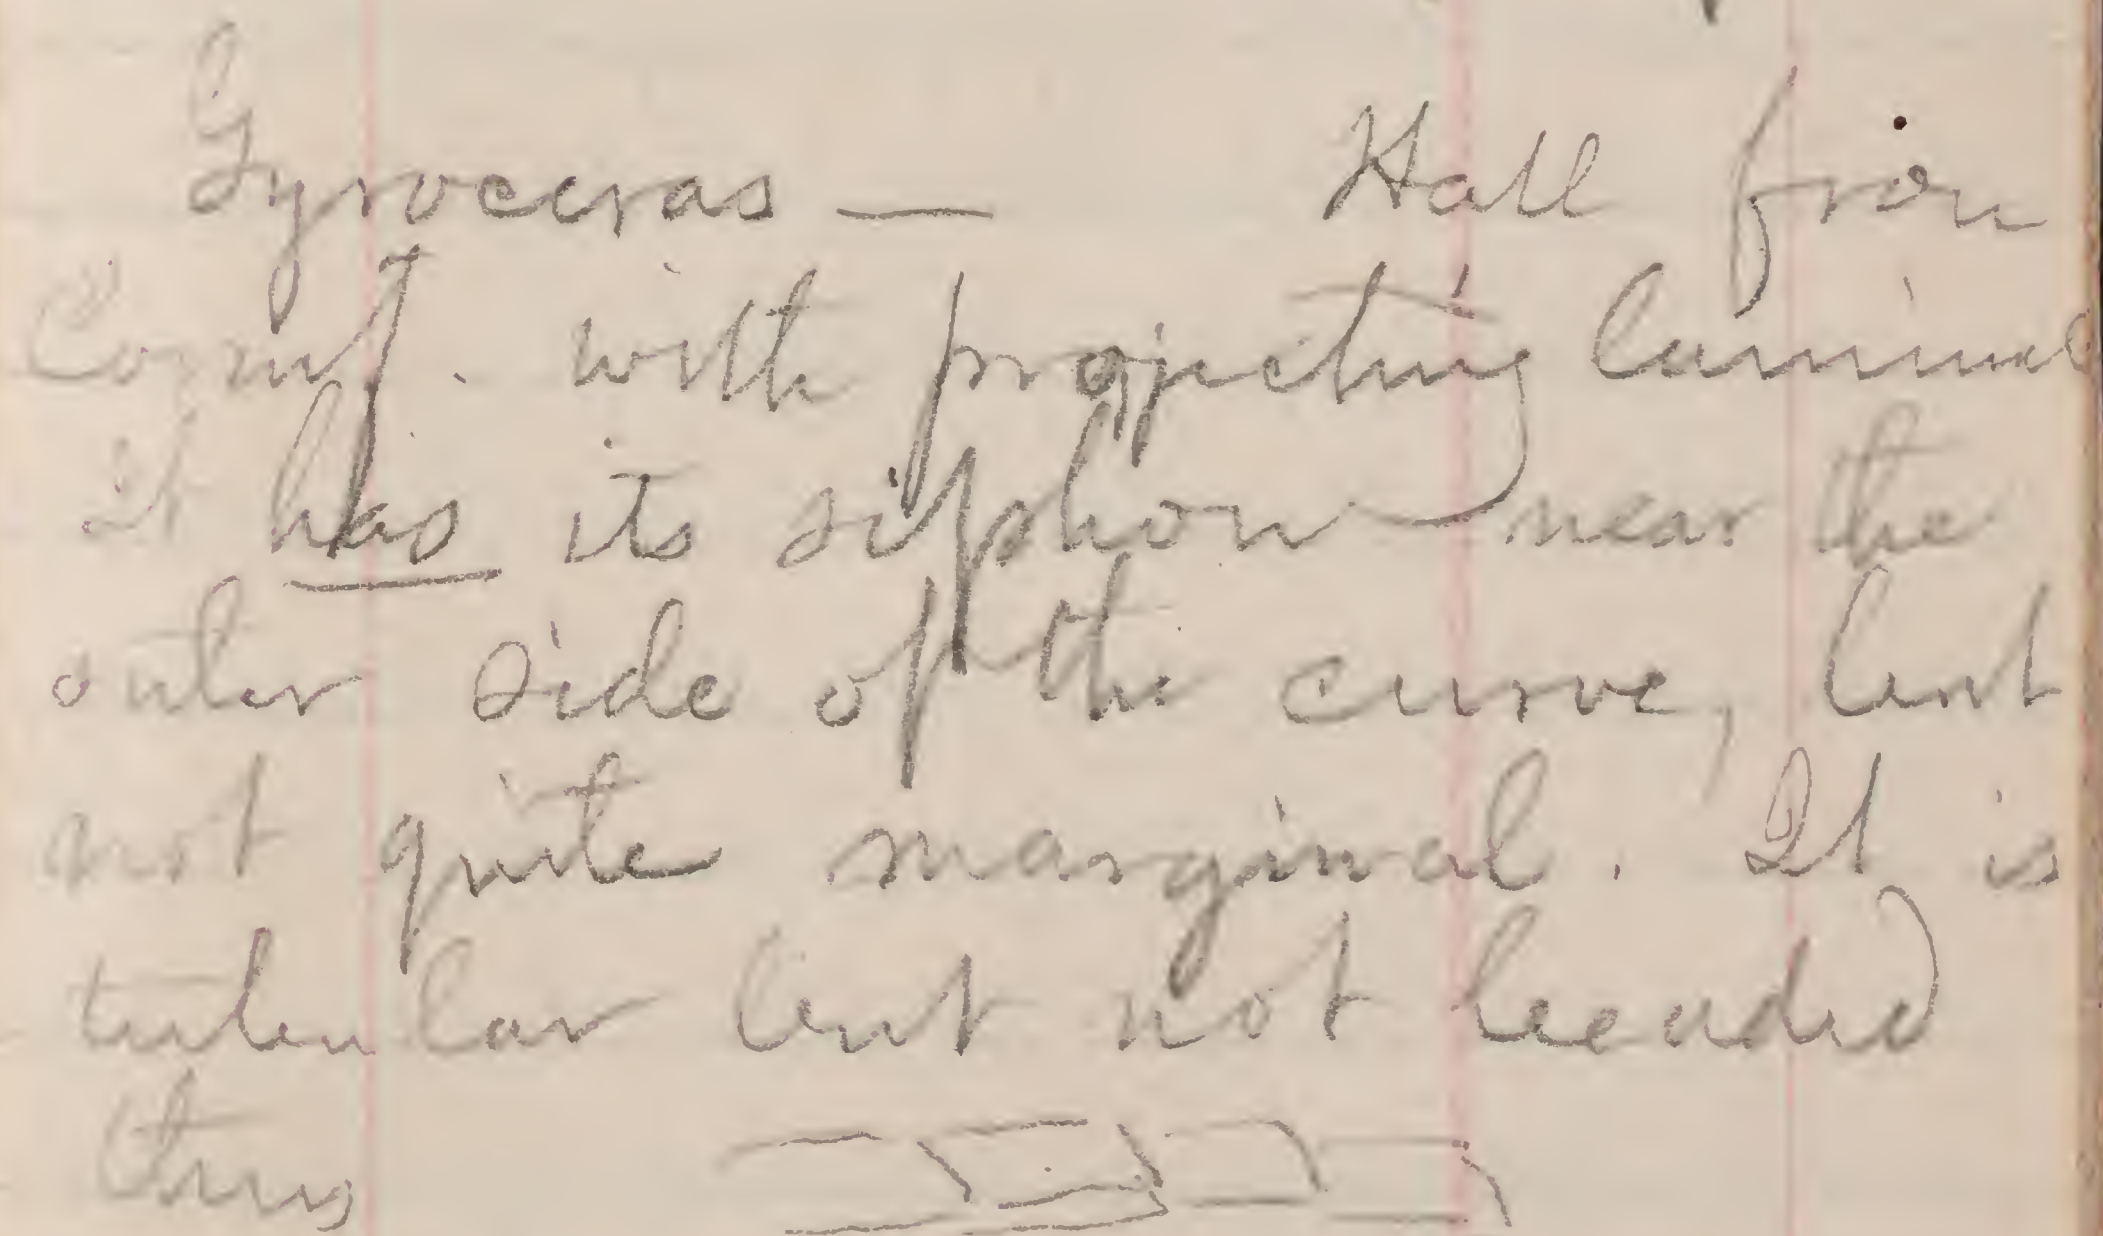 Gyroceras — Hall from
Cornif. with projecting laminae
It has its siphon near the
outer side of the curve, but
not quite marginal. It is
tubular but not beaded
thus